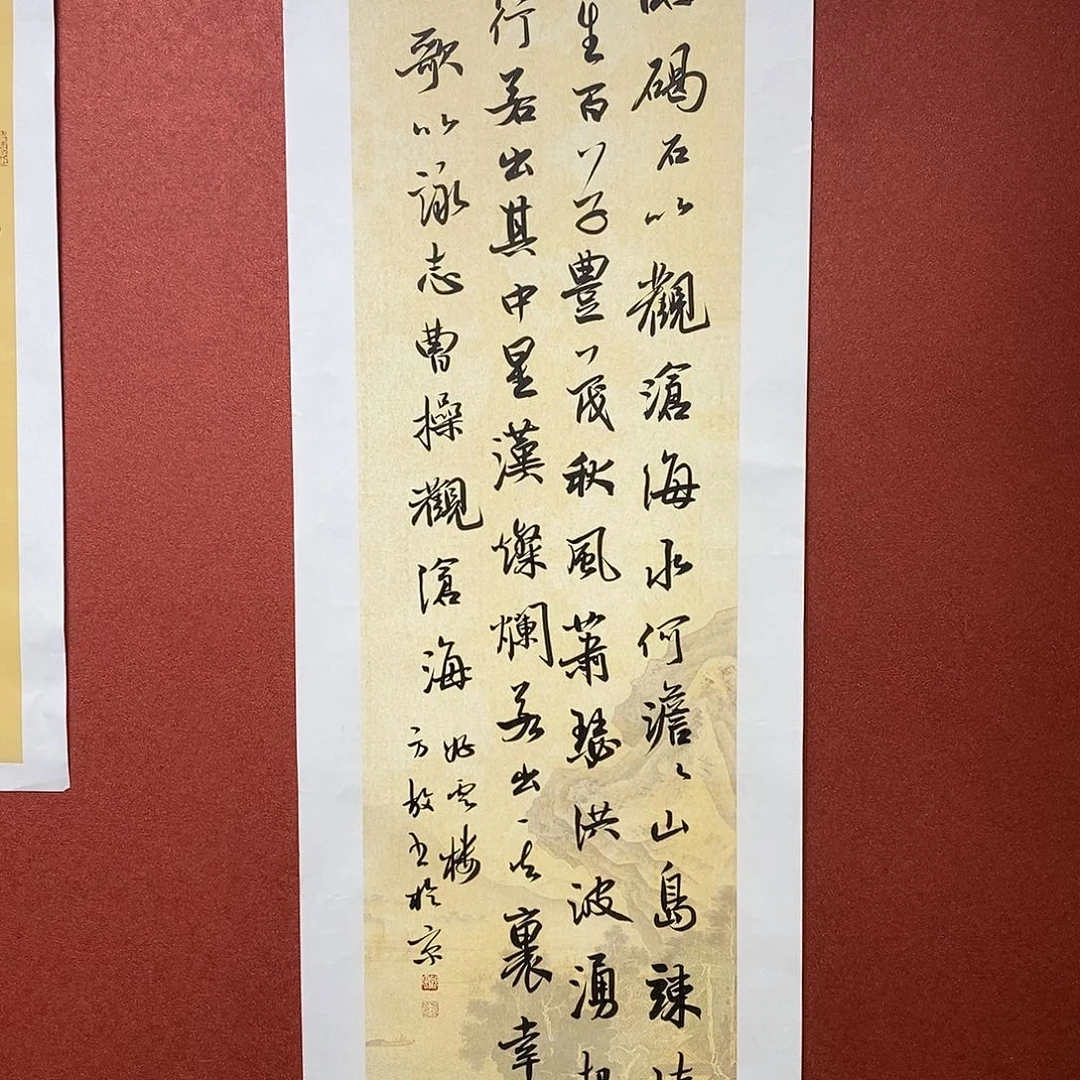 碣石以觀滄海水何澹々山島竦
生百草豐茂秋風蕭瑟洪波湧
行若出其中星漢燦爛若出其裏幸
歌以詠志曹操觀滄海
好雲楼
方放书於京